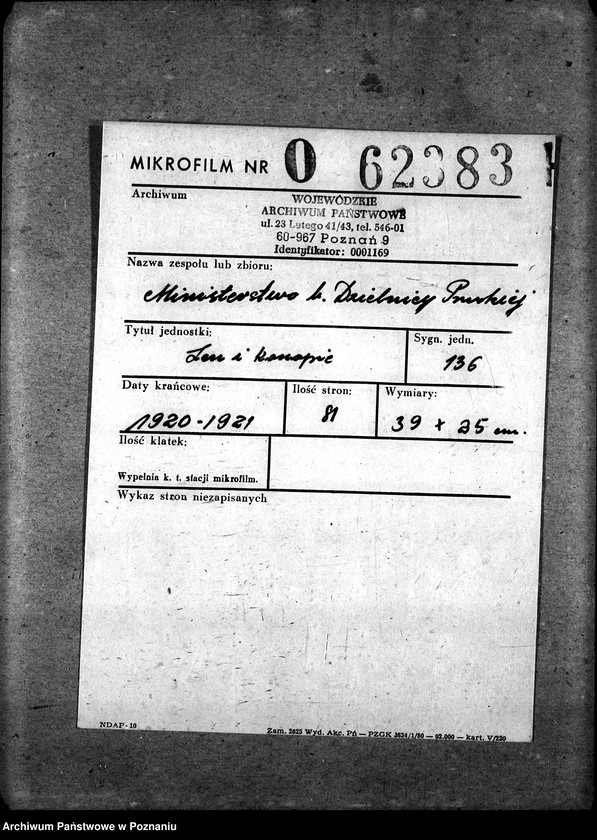 MIKROFILM NR O 62383
Archiwum
WOJEWÓDZKIE
ARCHIWUM PAŃSTWOWE
ul. 23 Lutego 41/43, tel. 546-01
60-967 Poznań 9
Identyfikator: 0001169
Nazwa zespołu lub zbioru:
Ministerstwo b. Dzielnicy Pruskiej
Tytuł jednostki:
Len i konopie
Sygn. jedn.
136
Daty krańcowe:
1920-1921
Ilość stron:
81
Wymiary:
39 x 25 cm.
Ilość klatek:
Wypełnia k. t. stacji mikrofilm.
Wykaz stron niezapisanych
NDAP-10
Zam. 2625 Wyd. Akc. Pń — PZGK 3034/1/80 — 92.000 — kart. V/220
Archiwum Państwowe w Poznaniu